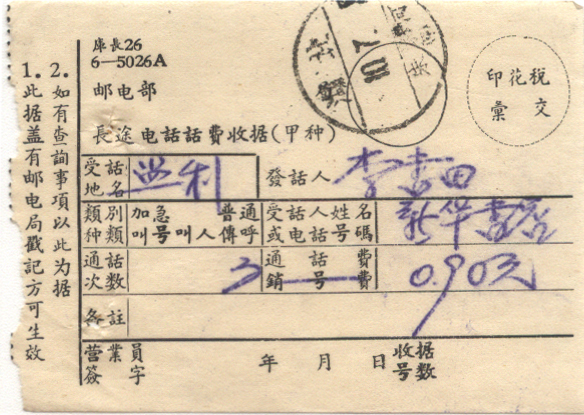 庫長26
6—5026A
邮电部
長途电話話費收据(甲种)
印花税
彙交
受話地名
利
發話人
李
田
類別种類
加急 普通
叫号叫人傳呼
受話人姓名
或电話号碼
新华書店
通話次数
3
通話費
銷号費
0.90元
备註
營業員
簽字
年 月 日
收据号数
1. 此据盖有邮电局戳記方可生效
2. 如有查詢事項以此为据